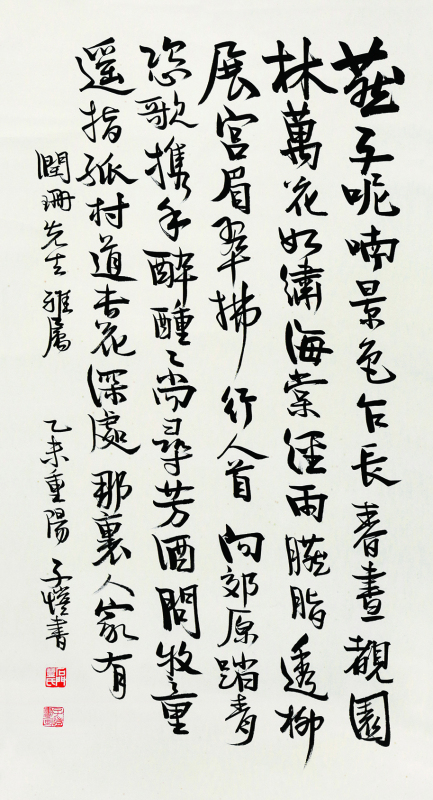 燕子呢喃景色乍長春晝覩園
林萬花如繡海棠經雨臙脂透柳
展宮眉翠拂行人首向郊原踏青
恣歌携手醉醺々尚尋芳酒問牧童
遥指孤村道杏花深處那裏人家有
潤珊先生雅屬
乙未重陽子愷書